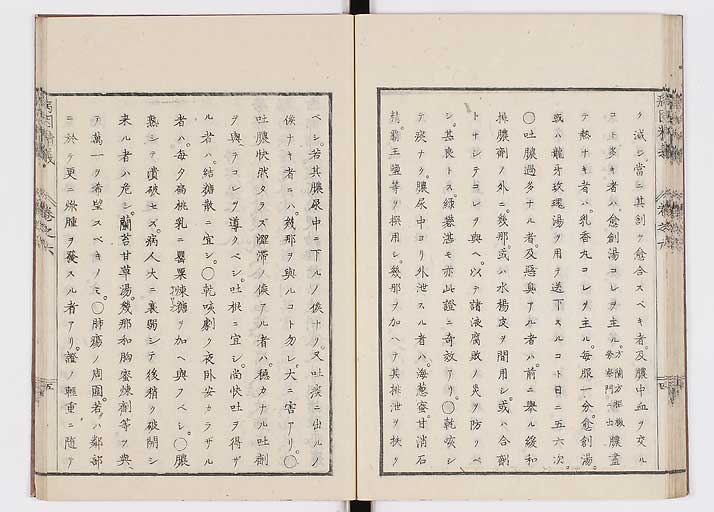 ク減シ當ニ其創ヲ愈合スベキ者及膿中血ヲ交ル
コト多キ者ハ愈創湯コレヲ主ル 膿盡
テ熱ナキ者ハ乳香丸コレヲ主ル每服一分愈創湯
或ハ龍牙玫瑰湯ヲ用テ送下スルコト日ニ五六次
〇吐膿過多ナル者及惡臭アル者ハ前ニ舉ル緩和
排膿劑ノ外ニ幾那或ハ水楊皮ヲ間用シ或ハ合劑
トナシテコレヲ與ヘ以テ諸液腐敗ノ災ヲ防クベ
シ甚良トス緑礬滿モ亦此證ニ奇效アリ〇乾咳シ
テ痰ナク膿尿中ヨリ外泄スル者ハ海葱蜜甘消石
精覇王鹽等ヲ撰用シ幾那ヲ加ヘテ其排泄ヲ扶ク
ベシ若其膿尿中ニ下ルノ候ナク又吐痰ニ出ルノ
候ナキ者ニハ幾那ヲ與ルコト勿レ大ニ害アリ〇
吐膿快然タラズ澀滯ノ候アル者ハ穩カナル吐劑
ヲ與ヘテコレヲ導クベシ吐根ニ宜シ尚快吐ヲ得ザ
ル者ハ結糖散ニ宜シ〇乾咳劇ク夜臥安カラザル
者ハ每夕扁桃乳ニ罌粟煉糖ヲ加ヘ與フベシ〇膿
熟シテ潰破セズ病人大ニ衰弱シテ後稍ク破開シ
來ル者ハ危シ蘭苔甘草湯幾那和胸蜜煉劑等ヲ與
テ萬一ヲ希望スベキノミ〇肺瘍ノ周圍若ハ鄰部
ニ於テ更ニ焮腫ヲ發スル者アリ證ノ輕重ニ隨テ
五